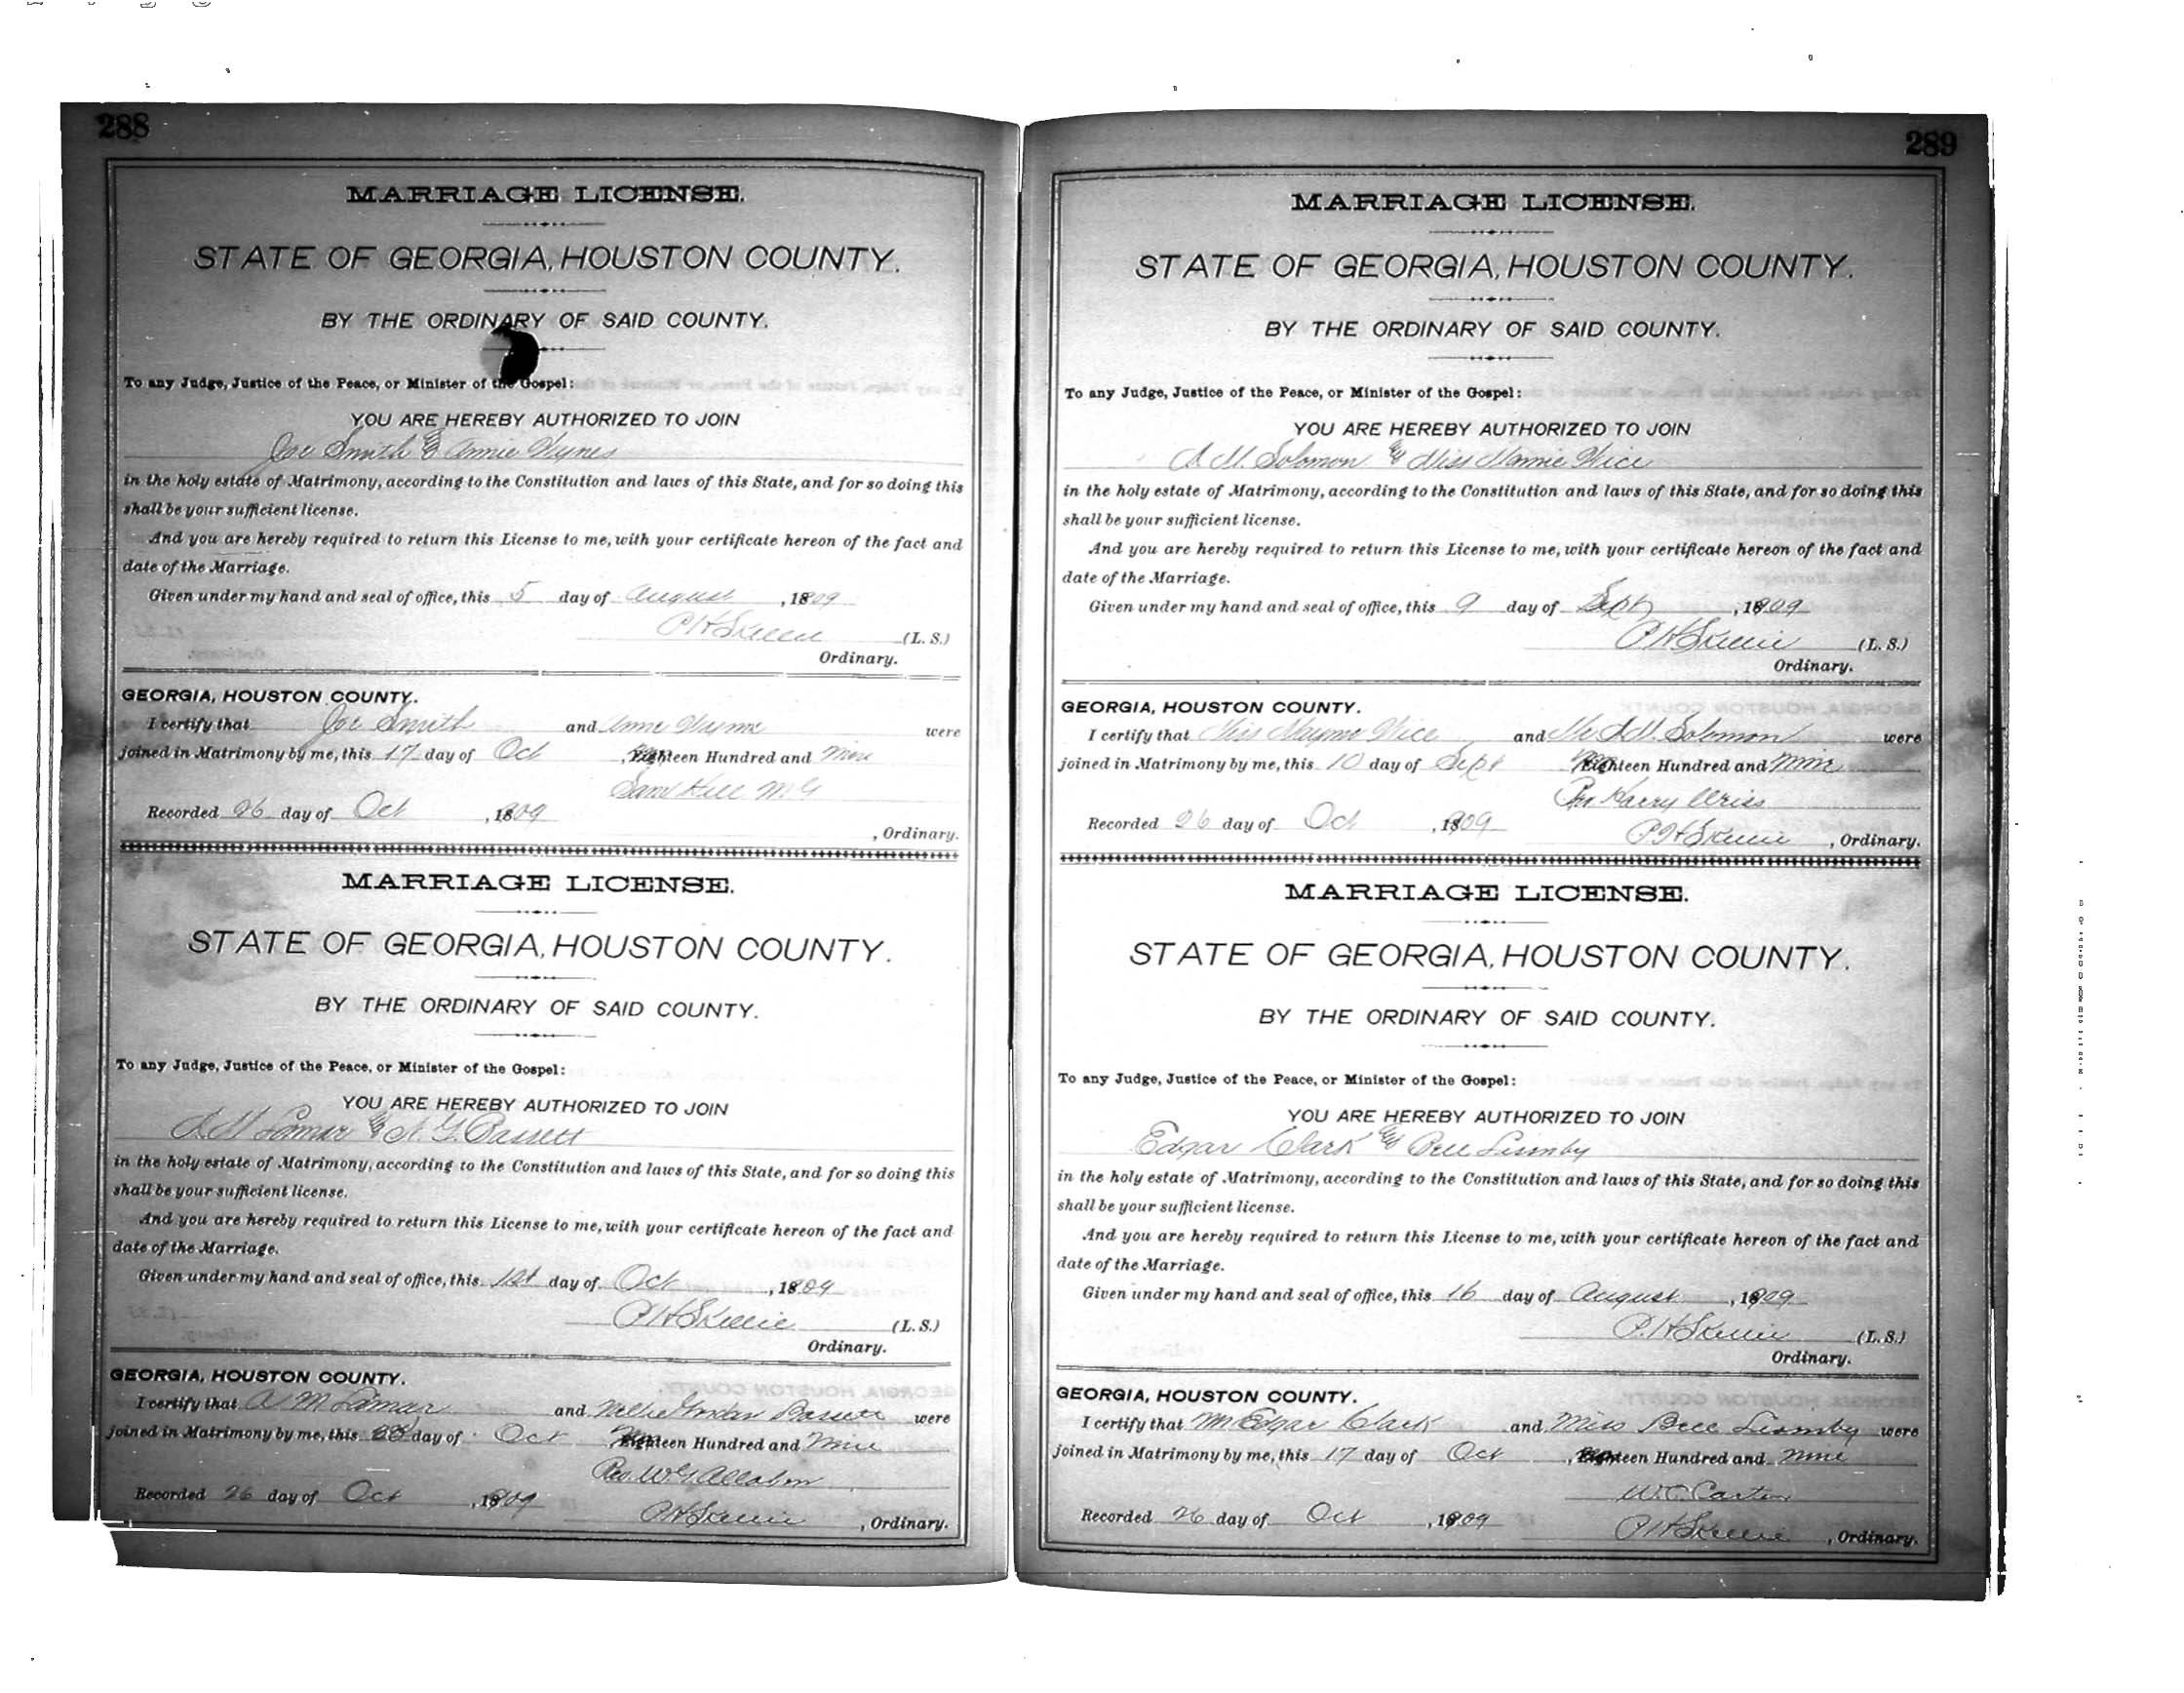 288
MARRIAGE LICENSE.
STATE OF GEORGIA, HOUSTON COUNTY.
BY THE ORDINARY OF SAID COUNTY.
To any Judge, Justice of the Peace, or Minister of the Gospel:
YOU ARE HEREBY AUTHORIZED TO JOIN
Joe Smith & Annie Wynes
in the holy estate of Matrimony, according to the Constitution and laws of this State, and for so doing this
shall be your sufficient license.
And you are hereby required to return this License to me, with your certificate hereon of the fact and
date of the Marriage.
Given under my hand and seal of office, this 5 day of August, 1909
(L. S.)
Ordinary.
GEORGIA, HOUSTON COUNTY.
I certify that Joe Smith and Wayne were
joined in Matrimony by me, this 17 day of Oct, teen Hundred and Nine
Sam Hill M.G
Recorded 26 day of Oct, 1909
, Ordinary.
MARRIAGE LICENSE.
STATE OF GEORGIA, HOUSTON COUNTY.
BY THE ORDINARY OF SAID COUNTY.
To any Judge, Justice of the Peace, or Minister of the Gospel:
YOU ARE HEREBY AUTHORIZED TO JOIN
A M Lamar & N. G. Bassett
in the holy estate of Matrimony, according to the Constitution and laws of this State, and for so doing this
shall be your sufficient license.
And you are hereby required to return this License to me, with your certificate hereon of the fact and
date of the Marriage.
Given under my hand and seal of office, this 1st day of Oct, 1909
(L. S.)
Ordinary.
GEORGIA, HOUSTON COUNTY.
I certify that A M Lamar and Nellie Bassett were
joined in Matrimony by me, this day of Oct teen Hundred and Nine
Rev. W. G.
Recorded 26 day of Oct, 1909
, Ordinary.
289
MARRIAGE LICENSE.
STATE OF GEORGIA, HOUSTON COUNTY.
BY THE ORDINARY OF SAID COUNTY.
To any Judge, Justice of the Peace, or Minister of the Gospel:
YOU ARE HEREBY AUTHORIZED TO JOIN
A M. Solomon & Miss Mamie Wice
in the holy estate of Matrimony, according to the Constitution and laws of this State, and for so doing this
shall be your sufficient license.
And you are hereby required to return this License to me, with your certificate hereon of the fact and
date of the Marriage.
Given under my hand and seal of office, this 9 day of Sept, 1909
(L. S.)
Ordinary.
GEORGIA, HOUSTON COUNTY.
I certify that Miss Mayme Wice and Mr A.M. Solomon were
joined in Matrimony by me, this 10 day of Sept teen Hundred and Nine
Harry Weiss
Recorded 26 day of Oct, 1909
, Ordinary.
MARRIAGE LICENSE.
STATE OF GEORGIA, HOUSTON COUNTY.
BY THE ORDINARY OF SAID COUNTY.
To any Judge, Justice of the Peace, or Minister of the Gospel:
YOU ARE HEREBY AUTHORIZED TO JOIN
Edgar Clark & Bell
in the holy estate of Matrimony, according to the Constitution and laws of this State, and for so doing this
shall be your sufficient license.
And you are hereby required to return this License to me, with your certificate hereon of the fact and
date of the Marriage.
Given under my hand and seal of office, this 16 day of August, 1909
(L. S.)
Ordinary.
GEORGIA, HOUSTON COUNTY.
I certify that Mr Edgar Clark and Miss Bell were
joined in Matrimony by me, this 17 day of Oct, teen Hundred and Nine
W. C. Carter
Recorded 26 day of Oct, 1909
, Ordinary.